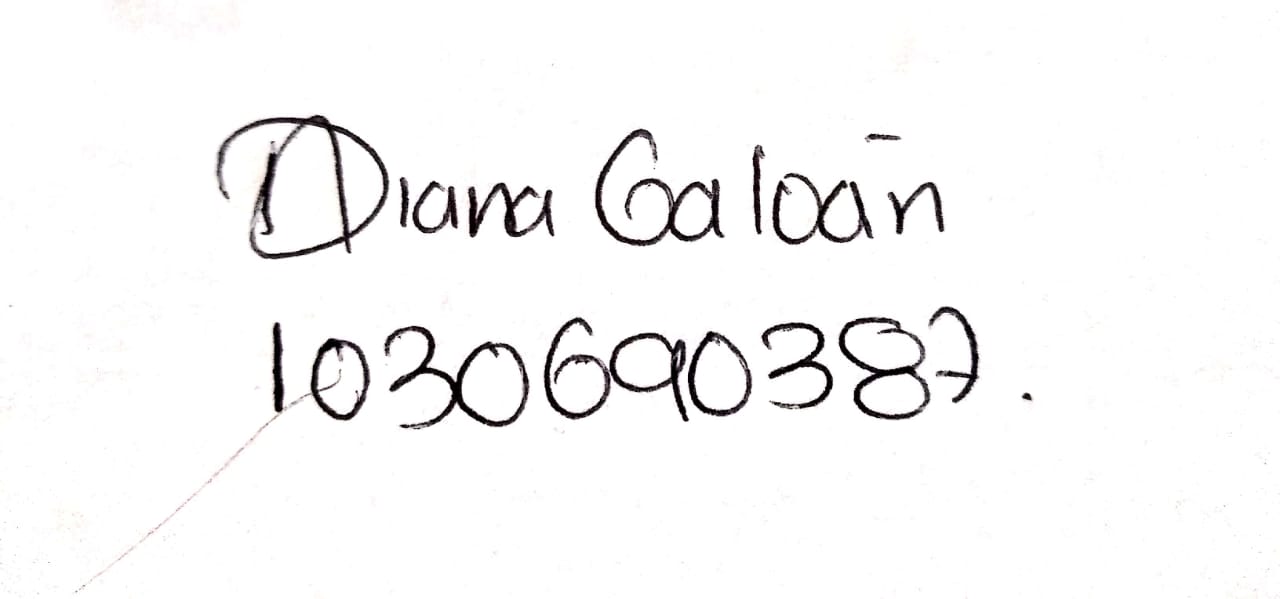 Diana Galoān
1030690387.